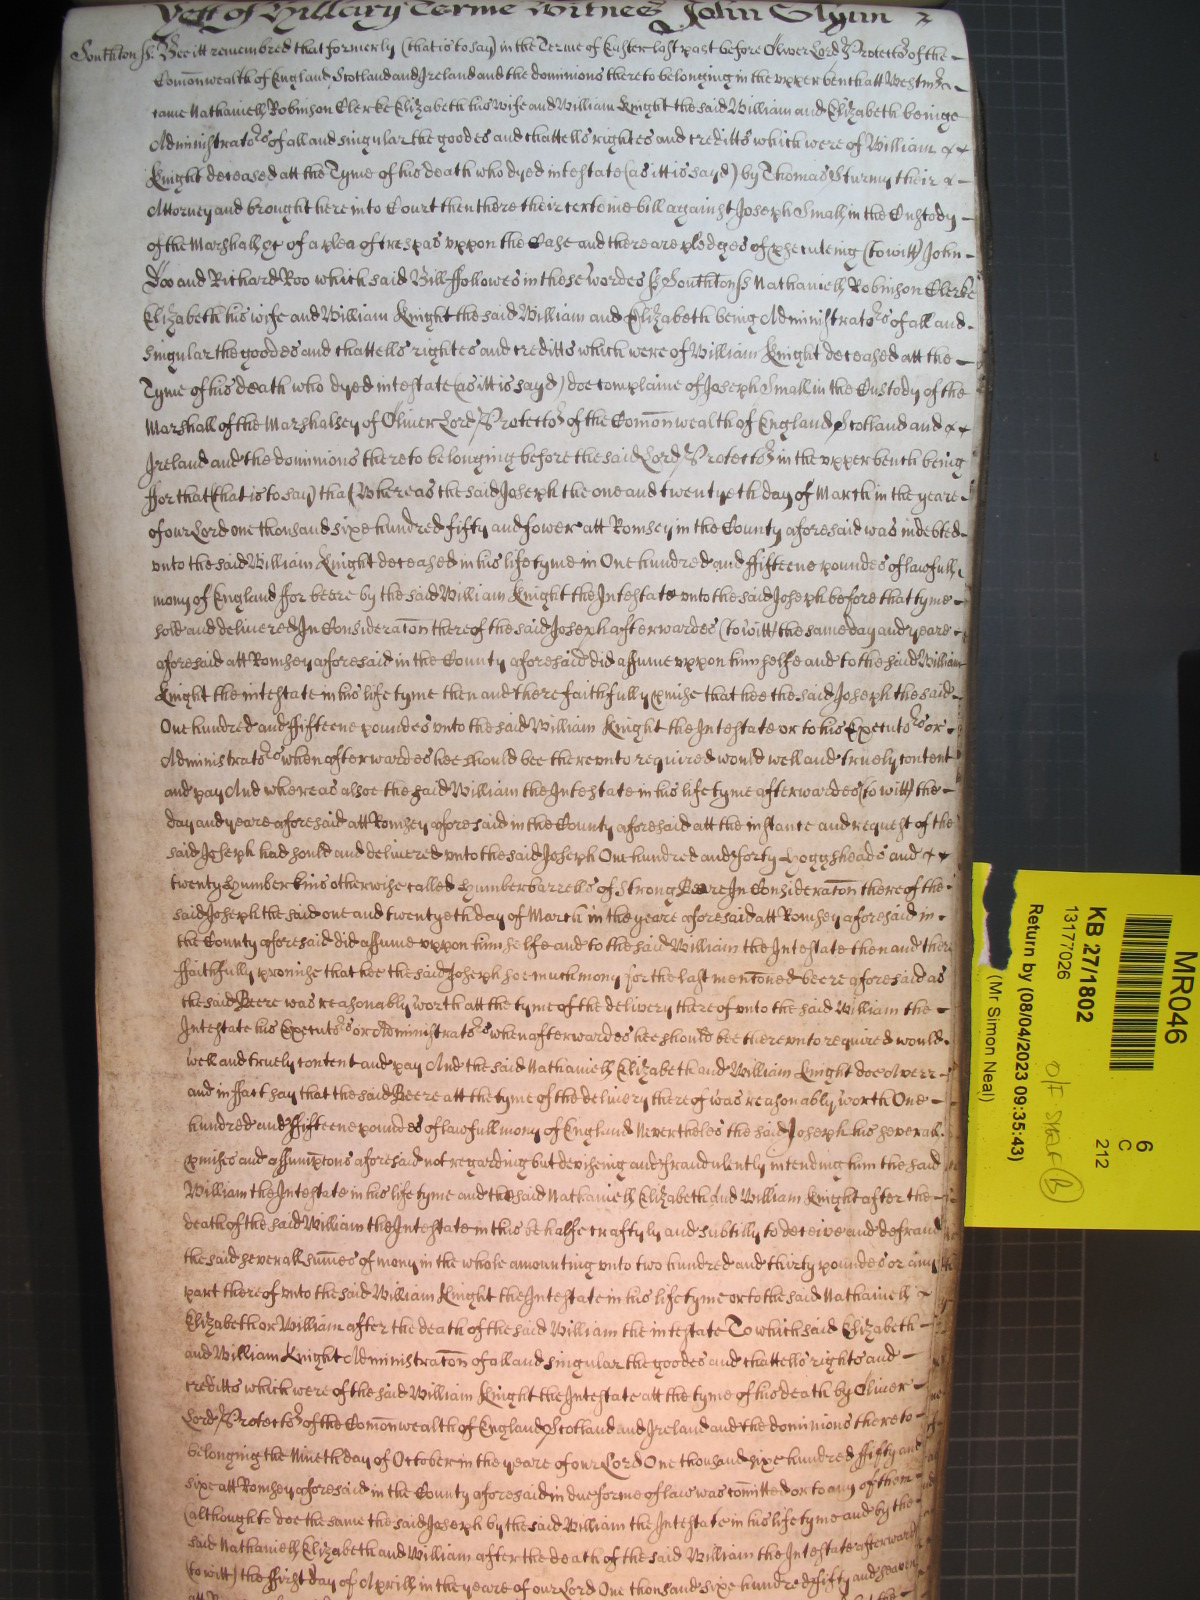 Yett of Hillary Terme Witnes John Glynn
Southton ss. Bee itt remembred that formerly (that is to say) in the Terme of Easter last past before Oliver Lord Protector of the
Comonwealth of England Scotland and Ireland and the dominions thereto belonging in the upper bench att Westmr
came Nathaniell Robinson Clerke Elizabeth his Wife and William Knight the said William and Elizabeth beinge
Administrators of all and singular the goodes and chattells rightes and creditts which were of William
Knight deceased att the Tyme of his death who dyed intestate (as itt is sayd) by Thomas Sturmy their
Attorney and brought here into Court then there their certeine bill against Joseph Small in the Custody
of the Marshall &c of a plea of trespas uppon the Case and there are pledges of prsecuteing (to witt) John
Doo and Richard Roo which said Bill followes in these wordes ss Southton ss Nathaniell Robinson Clerke
Elizabeth his wife and William Knight the said William and Elizabeth being Administrators of all and
singular the goodes and chattells rightes and creditts which were of William Knight deceased att the
Tyme of his death who dyed intestate (as itt is sayd) doe complaine of Joseph Small in the Custody of the
Marshall of the Marshalsey of Oliver Lord Protector of the Comonwealth of England Scotland and
Ireland and the dominions thereto belonging before the said Lord Protector in the upper bench being
ffor that (that is to say) that Whereas the said Joseph the one and twentyeth day of March in the yeare
of our Lord one thousand sixe hundred fifty and fower att Romsey in the County aforesaid was indebted
unto the said William Knight deceased in his life tyme in One hundred and ffifteene poundes of lawfull
mony of England ffor beere by the said William Knight the Intestate unto the said Joseph before that tyme
sold and delivered In Consideracon thereof the said Joseph afterwardes (to witt) the same day and yeare
aforesaid att Romsey aforesaid in the County aforesaid did assume uppon himselfe and to the said William
Knight the intestate in his life tyme then and there faithfully pmise that hee the said Joseph the said
One hundred and ffifteene poundes unto the said William Knight the Intestate or to his Executors or
Administrators when afterwardes hee should bee thereunto required would well and truely content
and pay And whereas alsoe the said William the Intestate in his life tyme afterwardes (to witt) the
day and yeare aforesaid att Romsey aforesaid in the County aforesaid att the instance and request of the
said Joseph had sould and delivered unto the said Joseph One hundred and forty Hoggsheads and
twenty humberkins otherwise called humberbarrells of Strong Beere In Consideracon thereof the
said Joseph the said one and twentyeth day of March in the yeare aforesaid att Romsey aforesaid in
the County aforesaid did assume uppon himselfe and to the said William the Intestate then and there
ffaithfully promise that hee the said Joseph soe much mony for the last menconed beere aforesaid as
the said Beere was reasonably worth att the tyme of the delivery thereof unto the said William the
Intestate his Executors or Administrators when afterwardes hee should bee thereunto required would
well and truely content and pay And the said Nathaniell Elizabeth and William Knight doe Averr
and in ffact say that the said Beere att the tyme of the delivery thereof was reasonably worth One
hundred and ffifteene poundes of lawfull mony of England Nevertheles the said Joseph his severall
pmises and assumptons aforesaid not regarding but devising and fraudulently intending him the said
William the Intestate in his life tyme and the said Nathaniell Elizabeth and William Knight after the
death of the said William the Intestate in this behalfe craftyly and subtilly to deceive and defraud
the said severall sumes of mony in the whole amounting unto two hundred and thirty poundes or any
part thereof unto the said William Knight the Intestate in his life tyme or to the said Nathaniell
Elizabeth or William after the death of the said William the intestate To which said Elizabeth
and William Knight Administracon of all and singular the goodes and chattells rights and
creditts which were of the said William Knight the Intestate att the tyme of his death by Oliver
Lord Protector of the Comonwealth of England Scotland and Ireland and the dominions thereto
belonging the Nineth day of October in the yeare of our Lord One thousand sixe hundred ffifty and
sixe att Romsey aforesaid in the County aforesaid in due forme of law was comitted or to any of them
(although to doe the same the said Joseph by the said William the Intestate in his life tyme and by the
said Nathaniell Elizabeth and William after the death of the said William the Intestate afterwards
(to witt) the ffirst day of Aprill in the yeare of our Lord One thousand sixe hundred fifty and seaven
MR046
KB 27/1802
13177026
Return by (08/04/2023 09:35:43)
(Mr Simon Neal)
6
C
212